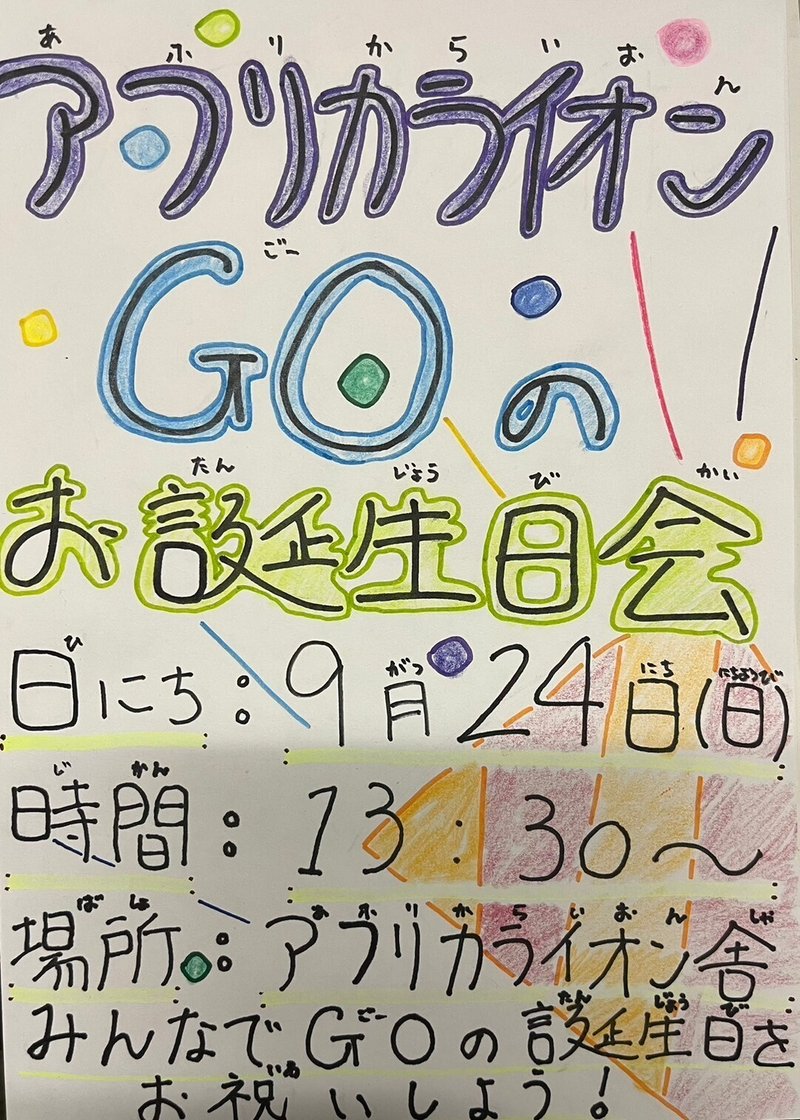 あふりからいおん
アフリカライオン
ごー
GOの!
たんじょうびかい
お誕生日会
ひがつにちにちようび
日にち:9月24日(日)
じかん
時間:13:30〜
ばしょあふりからいおんしゃ
場所:アフリカライオン舎
ごーたんじょうび
みんなでGOの誕生日を
いわ
お祝いしよう!